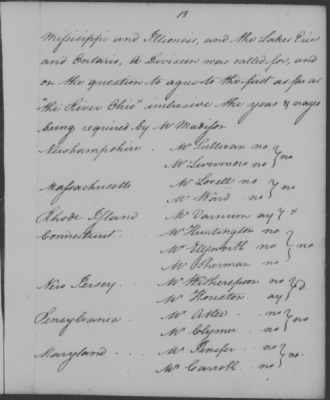 13
Mississippi and Illinois, and the Lakes Erie
and Ontario, A Division was called for, and
on the question to agree to the first as far as
"the River Ohio" inclusive the yeas & nays
being required by Mr Madison
Newhampshire . . Mr Sullivan no } no
Mr Livermore no
Massachusetts Mr Lovell no } no
Mr Ward no
Rhode Island Mr Varnum ay } x
Connecticut . . . Mr Huntington no } no
Mr Ellsworth no
Mr Sherman no
New Jersey . . . Mr Witherspoon no } d
Mr Houston ay
Pensylvania . . Mr Atlee no } no
Mr Clymer no
Maryland . . . . Mr Jenifer no } no.
Mr Carroll no